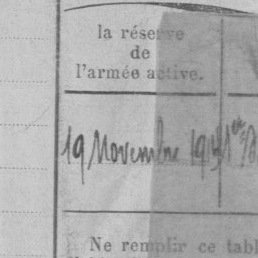 la réserve
de
l'armée active.
19 Novembre
Ne remplir ce